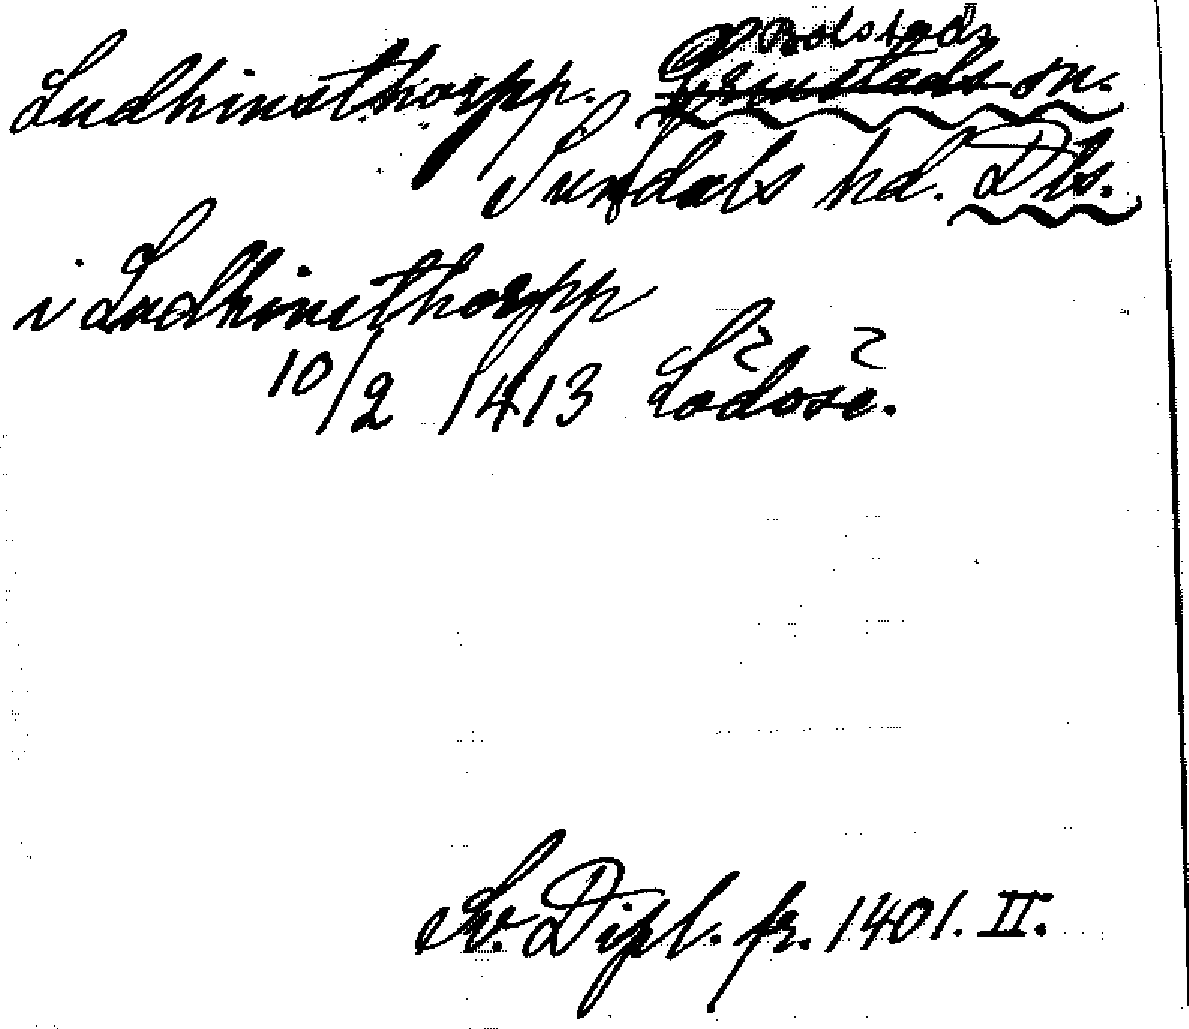 Bolstads
Ludhinsthorpp. Grinstads sn.
Sundals hd. Dls.
i Ludhinsthorpp
10/2 1413 Lödöse.
Sv. Dipl. fr. 1401. II.